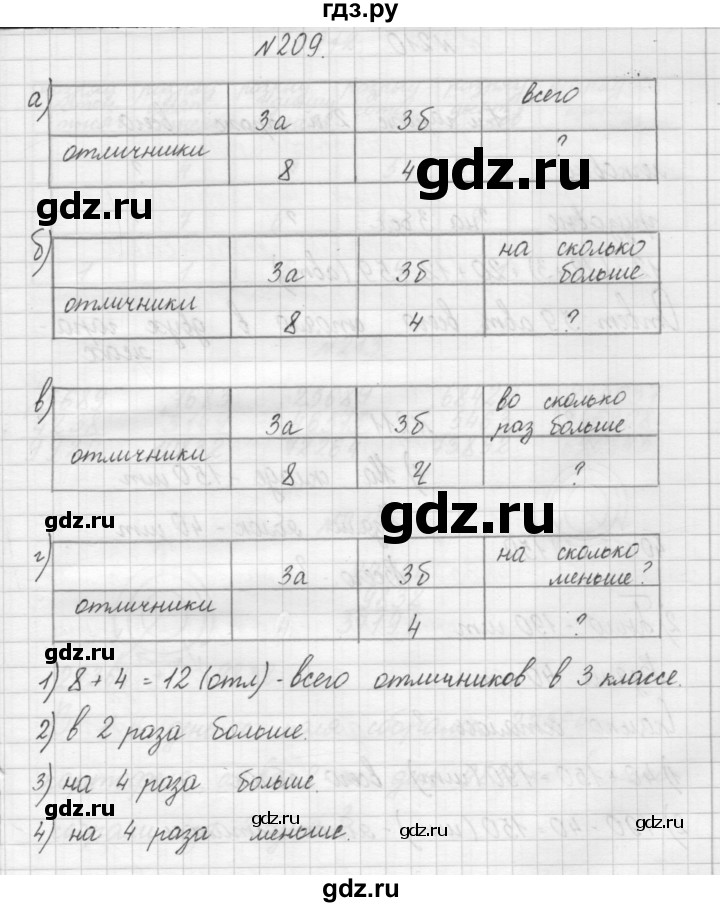 гдз.ру
№209.
а) 3а 3б всего
отличники 8 4 ?
gdz.ru
gdz.ru
б) 3а 3б на сколько больше
отличники 8 4 ?
в) 3а 3б во сколько раз больше
отличники 8 4 ?
gdz.ru
gdz.ru
г) 3а 3б на сколько меньше?
отличники 4 ?
1) 8 + 4 = 12 (отл) - всего отличников в 3 классе.
2) в 2 раза больше.
3) на 4 раза больше.
gdz.ru
4) на 4 раза меньше.
gdz.ru
gdz.ru
gdz.ru